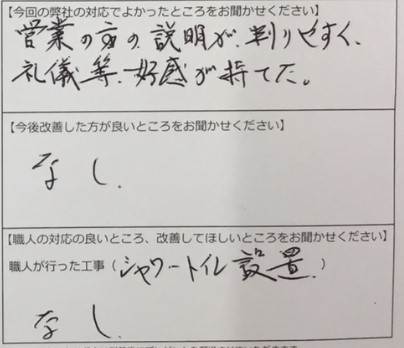 【今回の弊社の対応でよかったところをお聞かせください】
営業の方の説明が、判りやすく、
礼儀等、好感が持てた。
【今後改善した方が良いところをお聞かせください】
なし.
【職人の対応の良いところ、改善してほしいところをお聞かせください】
職人が行った工事(シャワートイレ設置.)
なし.